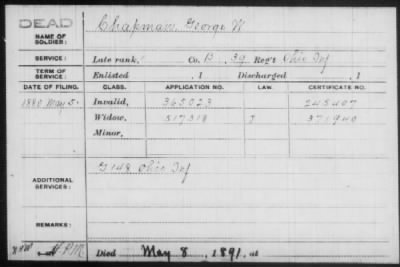 DEAD
NAME OF SOLDIER: Chapman, George W
SERVICE: Late rank, Co. B, 39 Reg't Ohio Inf
TERM OF SERVICE: Enlisted , 1 Discharged , 1
DATE OF FILING. CLASS. APPLICATION NO. LAW. CERTIFICATE NO.
1880 May 5. Invalid, 365023 245407
Widow, 517318 J 371940
Minor,
ADDITIONAL SERVICES: G 148 Ohio Inf
REMARKS:
Died May 8, 1891, at